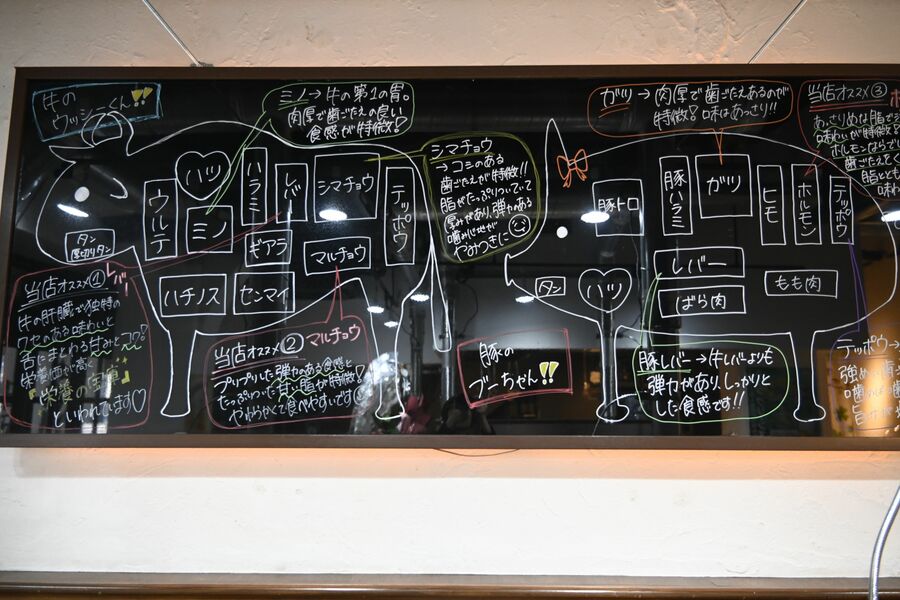 牛の
ウッシーくん!!
ミノ→牛の第1の胃。
肉厚で歯ごたえの良い
食感が特徴♪
シマチョウ
→コシのある
歯ごたえが特徴!!
脂がたっぷりついていて
厚みがあり、弾力のある
噛み心地が
やみつきに
タン
厚切りタン
ウルテ
ハツ
ミノ
ハラミ
レバー
ギアラ
シマチョウ
マルチョウ
テッポウ
ハチノス
センマイ
当店オススメ①
レバー
牛の肝臓で独特の
クセのある味わいと
舌にまとわる甘みとコク!
栄養価が高く
『栄養の宝庫』
といわれています♡
当店オススメ② マルチョウ
プリプリした弾力のある食感と
たっぷりついた甘い脂が特徴!
やわらかくて食べやすいです
豚の
ブーちゃん!!
ガツ→肉厚で歯ごたえあるのが
特徴♪味はあっさり!!
当店オススメ③
あっさりめな脂で
味わいが特徴
ホルモンならで
歯ごたえ
脂ととも
味わ
豚トロ
豚ハラミ
ガツ
ヒモ
ホルモン
テッポウ
タン
ハツ
レバー
ばら肉
もも肉
豚レバー→牛レバーよりも
弾力があり、しっかりと
した食感です!!
テッポウ→
強めの歯
噛
旨